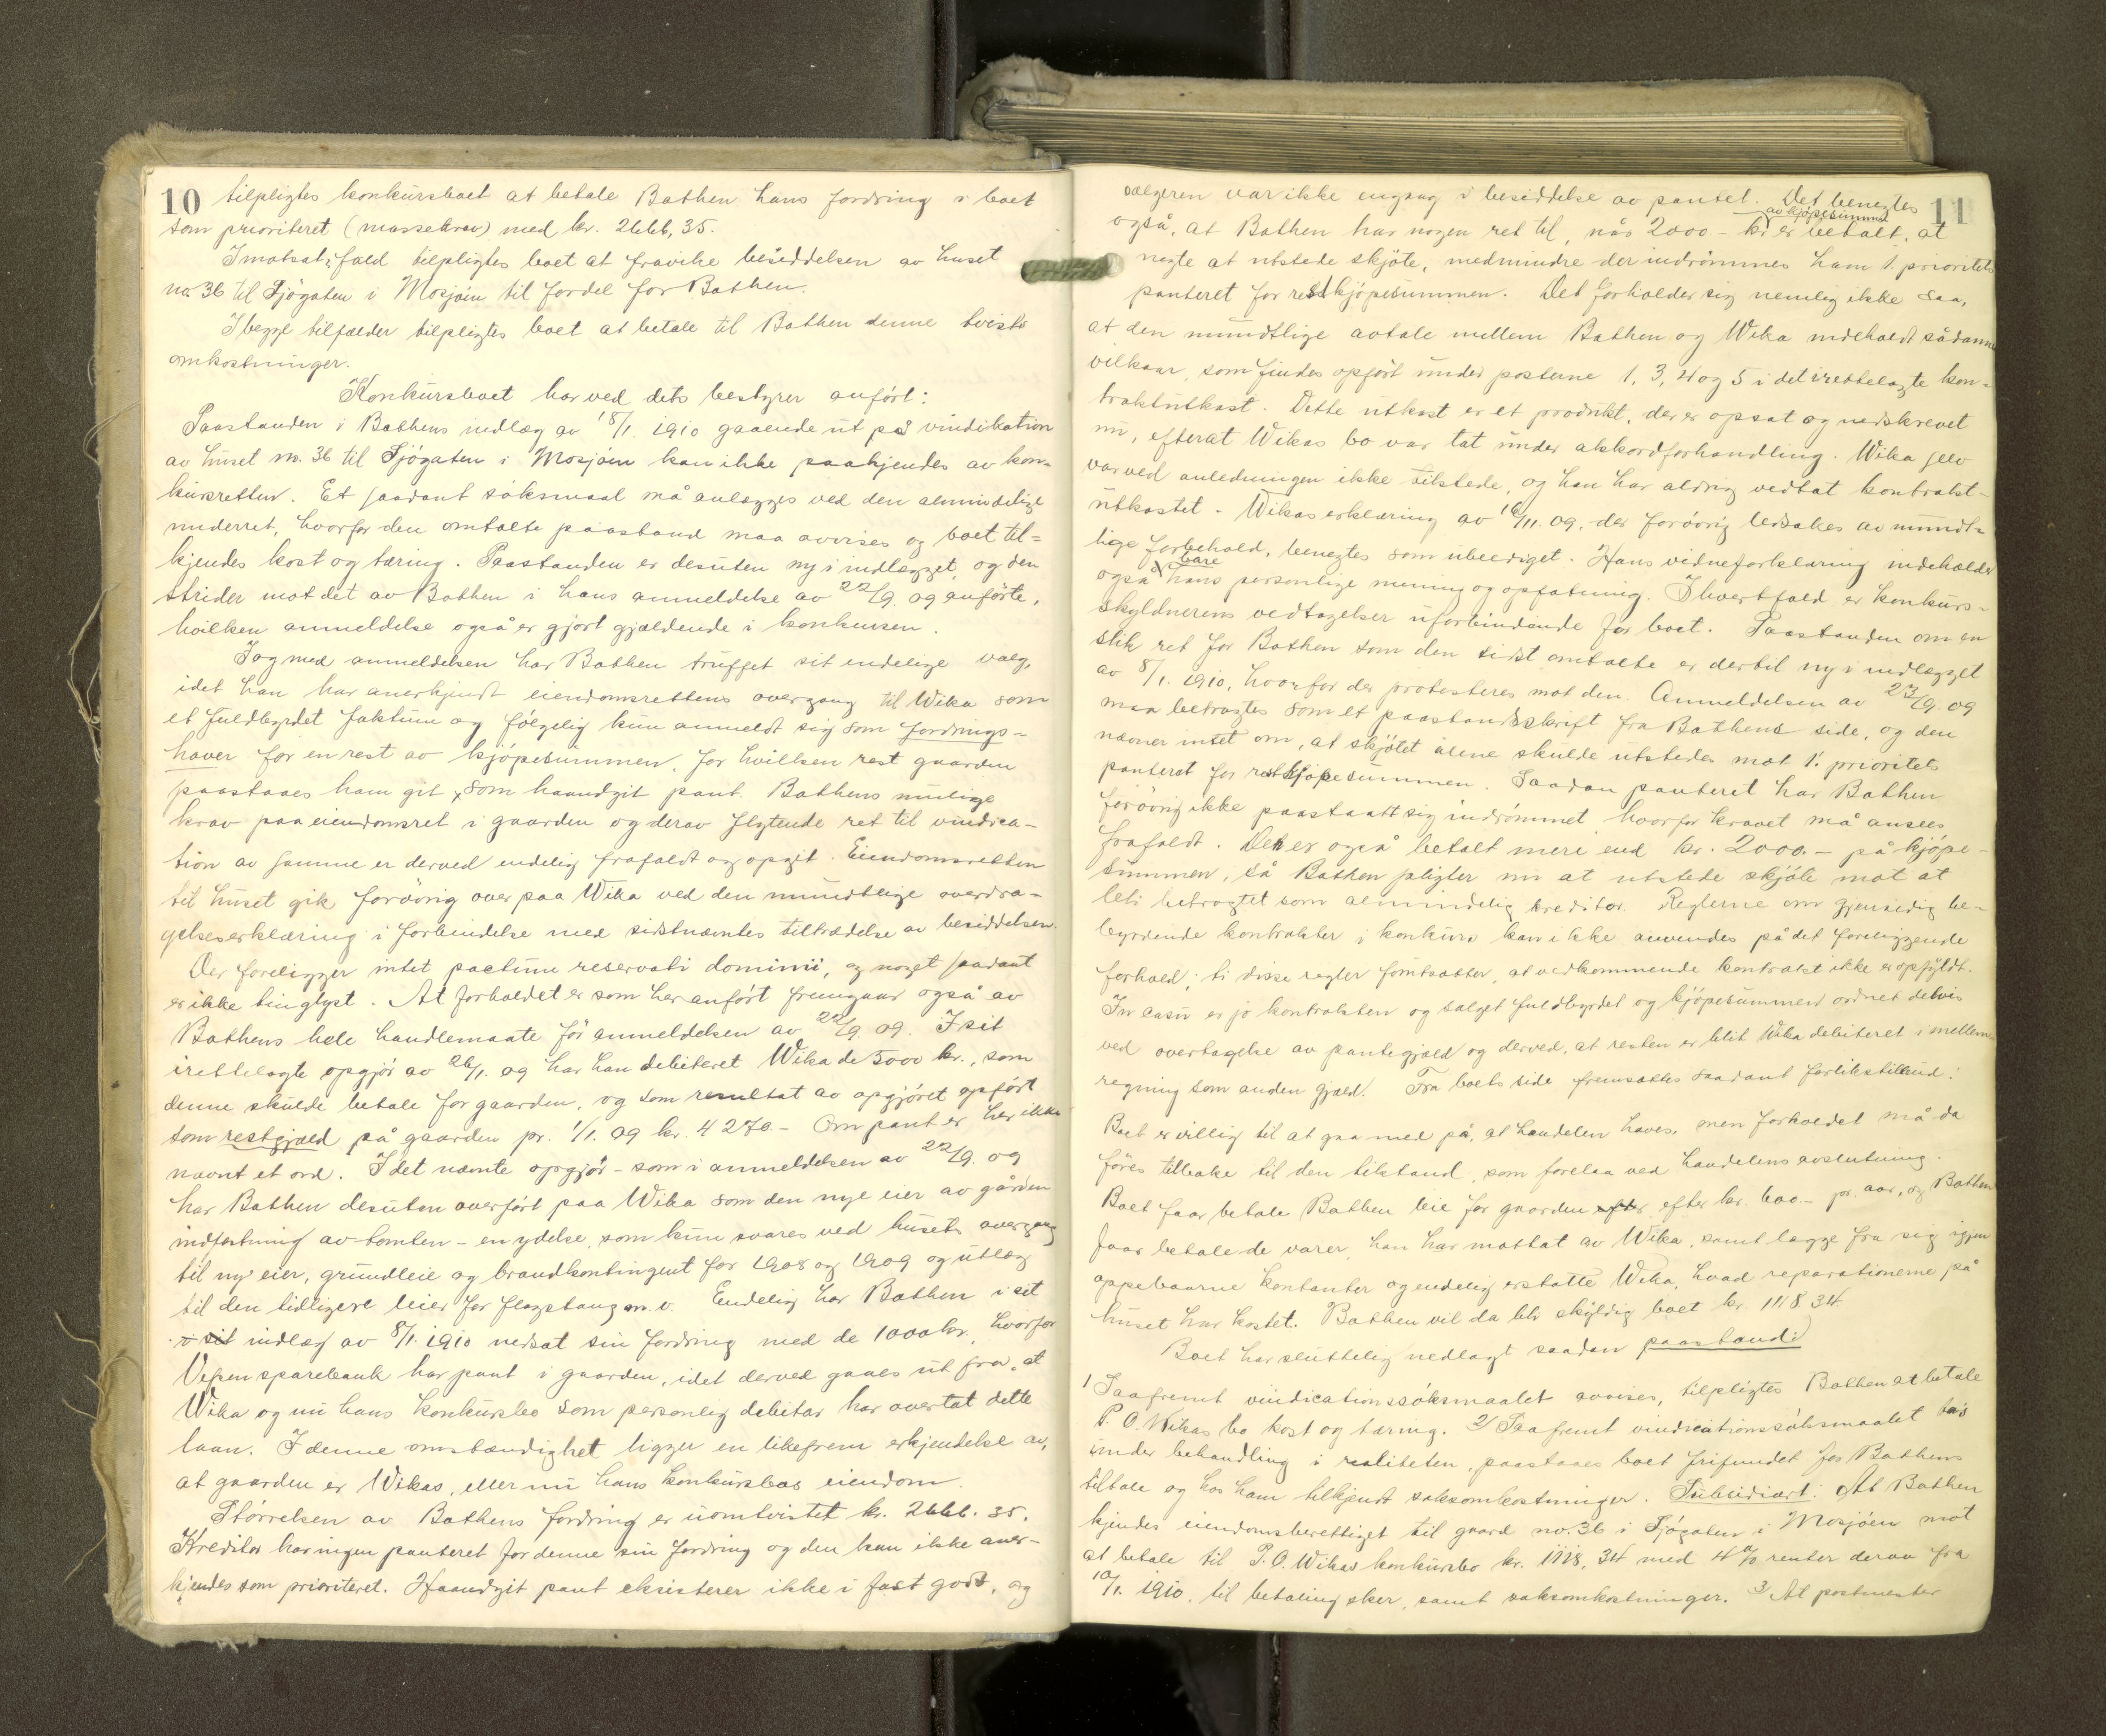 10 tilpligtes konkursboet at betale Bathen hans fordring i boet
som prioriteret (massekrav) med kr. 2666,35.
I motsat fald tilpligtes boet at fravike besiddelsen av huset
no. 36 til Sjögaten i Mosjöen til fordel for Bathen.
I begge tilfælder tilpligtes boet at betale til Bathen denne tvists
omkostninger.
Konkursboet har ved dets bestyrer anfört:
Paastanden i Bathens indlæg av 8/1. 1910 gaaende ut på vindikation
av huset no. 36 til Sjögaten i Mosjöen kan ikke paakjendes av kon-
kursretten. Et saadant söksmaal må anlægges ved den almindelige
underret, hvorfor den omtalte paastand maa avvises og boet til=
kjendes kost og tæring. Paastanden er desuten ny i indlægget, og den
strider mot det av Bathen i hans anmeldelse av 22/9. 09 anförte,
hvilken anmeldelse også er gjort gjældende i konkursen.
I og med anmeldelsen har Bathen truffet sit endelige valg,
idet han har anerkjendt eiendomsrettens overgang til Wika som
et fuldbyrdet faktum og fölgelig kun anmeldt sig som fordrings-
haver for en rest av kjöpesummen, for hvilken rest gaarden
paastaaes ham git som haandgit pant. Bathens mulige
krav paa eiendomsret i gaarden og derav flytende ret til vindica-
tion av samme er derved endelig frafaldt og opgit. Eiendomsretten
til huset gik forövrig over paa Wika ved den mundtlige overdra-
gelseserklæring i forbindelse med sidstnæmtes tiltrædelse av besiddelsen.
Der foreligger intet pactum reservati dominii, og noget saadant
er ikke tinglyst. At forholdet er som her anfört fremgaar også av
Bathens hele handlemaate för anmeldelsen av 22/9. 09. I sit
irettelagte opgjör av 26/1. 09 har han debiteret Wika de 5000 kr., som
denne skulde betale for gaarden, og som resultat av opgjöret opfört
som restgjæld på gaarden pr. 1/1. 09 kr. 4270.- Om pant er her ikke
nævnt et ord. I det næmte opgjör - som i anmeldelsen av 22/9. 09
har Bathen desuten overfört paa Wika som den nye eier av gården
indfestning av tomten - en ydelse, som kun svares ved husets overgang
til ny eier, grundleie og brandkontingent for 1908 og 1909 og utlæg
til den tidligere leier for flagstang m. v. Endelig har Bathen i sit
i sit indlæg av 8/1. 1910 nedsat sin fordring med de 1000 kr., hvorfor
Vefsen sparebank har pant i gaarden, idet derved gaaes ut fra, at
Wika og nu hans konkursbo som personlig debitor har overtat dette
laan. I denne omstændighet ligger en likefrem erkjendelse av,
at gaarden er Wikas, eller nu hans konkursbos eiendom.
Störrelsen av Bathens fordring er uomtvistet kr. 2666.35.
Kreditor har ingen panteret for denne sin fordring og den kan ikke aner-
kjendes som prioriteret. Haandgit pant eksisterer ikke i fast gods, og
11
sælgeren var ikke engang i besiddelse av pantet. Det benegtes
også, at Bathen har nogen ret til, når 2000 - kr. av kjöpesummen er betalt, at
negte at utstede skjöte, medmindre der indrömmes ham 1. prioritets
panteret for restkjöpesummen. Det forholder sig nemlig ikke saa,
at den mundtlige avtale mellem Bathen og Wika indeholdt sådanne
vilkaar, som findes opfört under posterne 1, 3, 4 og 5 i det irettelagte kon-
traktutkast. Dette utkast er et produkt, der er opsat og nedskrevet
nu, efterat Wikas bo var tat under akkordforhandling. Wika selv
var ved anledningen ikke tilstede, og han har aldrig vedtat kontrakt-
utkastet. Wikas erklæring av 16/11. 09, der forövrig ledsakes av mundt-
lige forbehold, benegtes som ubeediget. Hans vidneforklaring indeholder
også bare hans personlige mening og opfatning. Ihvertfald er konkurs-
skyldnerens vedtagelser uforbindende for boet. Paastanden om en
slik ret for Bathen som den sidst omtalte er dertil ny i indlægget
av 8/1. 1910, hvorfor der protesteres mot den. Anmeldelsen av 23/9. 09
maa betragtes som et paastandsskrift fra Bathens side, og den
nævner intet om, at skjötet alene skulde utstedes mot 1. prioritets
panteret for restkjöpesummen. Saadan panteret har Bathen
forövrig ikke paastaatt sig indrömmet, hvorfor kravet må ansees
frafaldt. Der er også betalt mere end kr. 2000.- på kjöpe-
summen, så Bathen pligter nu at utstede skjöte mot at
bli betragtet som almindelig kreditor. Reglerne om gjensidig be-
byrdende kontrakter i konkurs kan ikke anvendes på det foreliggende
forhold; ti disse regler forutsætter, at vedkommende kontrakt ikke er opfyldt.
In casu er jo kontrakten og salget fuldbyrdet og kjöpesummen ordnet delvis
ved overtagelse av pantegjæld og derved, at resten er blit Wika debiteret i mellem-
regning som anden gjæld. Fra boets side fremsattes saadant forlikstilbud:
Boet er villig til at gaa med på, at handelen hæves, men forholdet må da
föres tilbake til den tilstand, som forelaa ved handelens avslutning.
Boet faar betale Bathen leie for gaarden efter efter kr. 600.- pr. aar, og Bathen
faar betale de varer, han har mottat av Wika, samt lægge fra sig igjen
oppebaarne kontanter og endelig erstatte Wika, hvad reparationerne på
huset har kostet. Bathen vil da bli skyldig boet kr. 1118.34.
Boet har sluttelig nedlagt saadan paastand:
1 Saafremt vindicationssöksmaalet avvises, tilpligtes Bathen at betale
P. O. Wikas bo kost og tæring. 2/ Saafremt vindicationssöksmaalet tas
under behandling i realiteten, paastaaes boet frifundet for Bathens
tiltale og hos ham tilkjendt saksomkostninger. Subsidiært: At Bathen
kjendes eiendomsberettiget til gaard no. 36 i Sjögaten i Mosjöen mot
at betale til P. O. Wikas konkursbo kr. 1118,34 med 4% renter derav fra
10/1. 1910, til betaling sker, samt saksomkostninger. 3/ At postmester